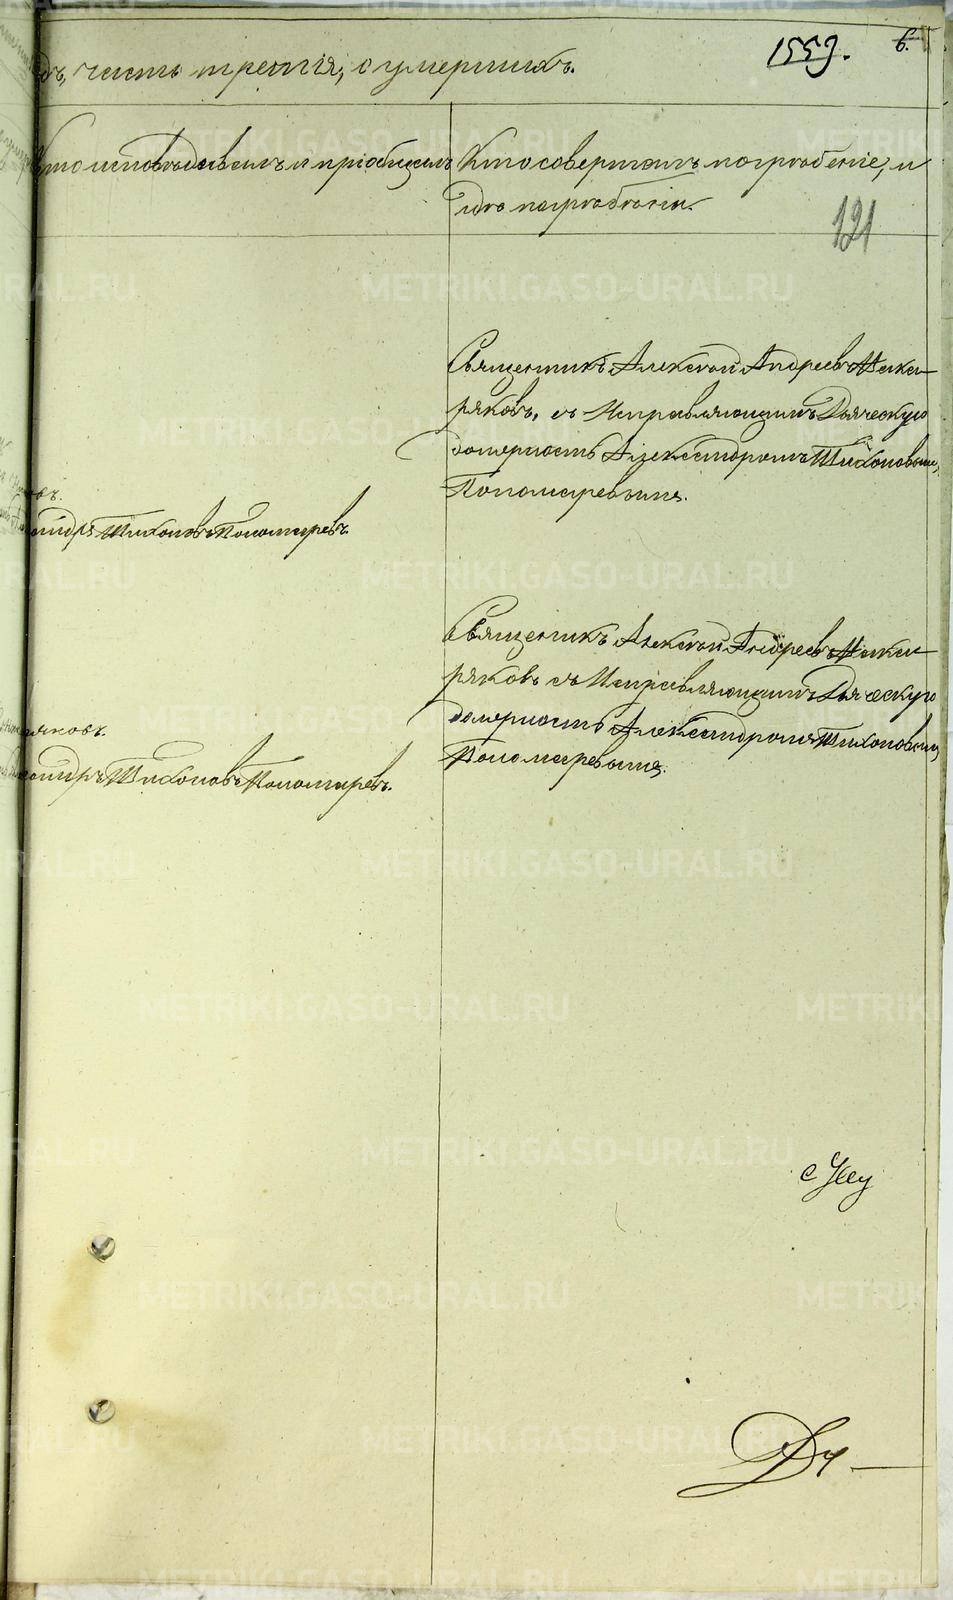 дъ, часть третія, о умершихъ.
1559.
6.
Кто исповѣдывалъ и пріобщалъ
Кто совершалъ погребеніе, и
гдѣ погребены.
121
Священникъ Алексѣй Андреевъ
ряковъ, съ Исправляющимъ Дьяческую
должность Александромъ Тихоновымъ
Пономаревымъ.
въ.
андръ Тихоновъ Пономаревъ.
Священникъ Алексѣй Андреевъ
ряковъ съ Исправляющимъ Дьяческую
должность Александромъ Тихоновымъ
Пономаревымъ.
яковъ.
андръ Тихоновъ Пономаревъ.
METRIKI.GASO-URAL.RU